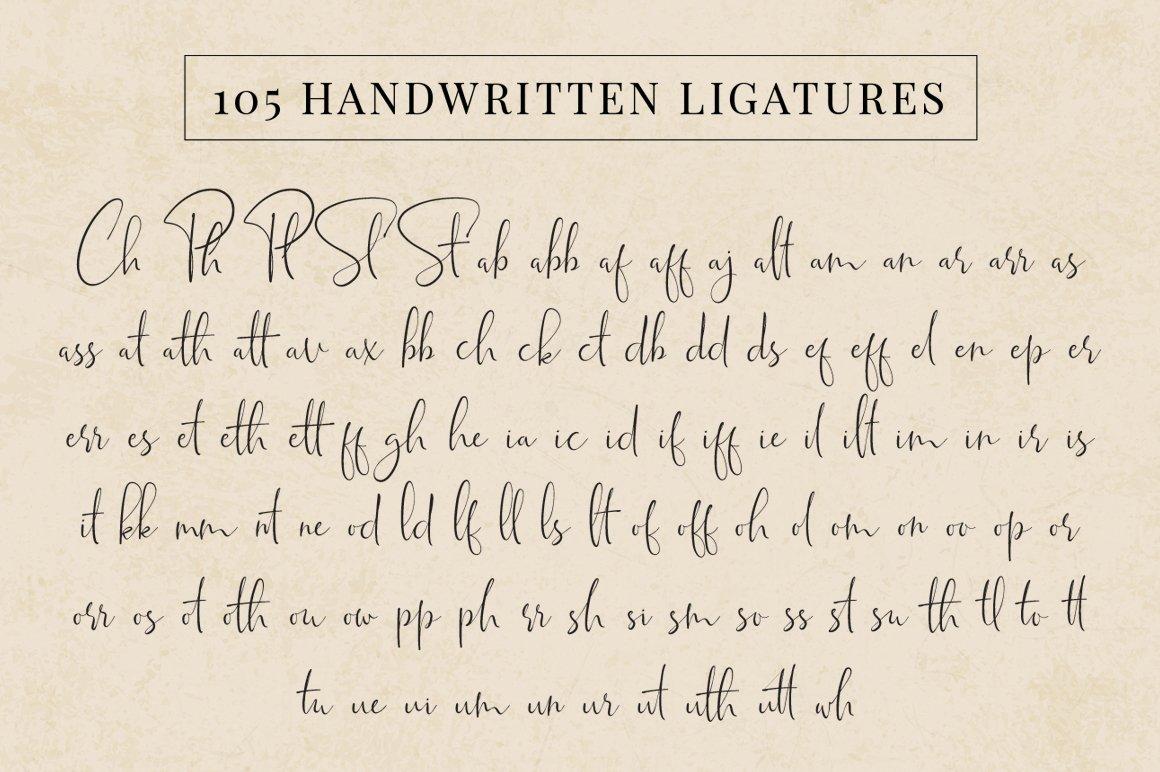 105 HANDWRITTEN LIGATURES
Ch Ph Pl Sl St ab abb af aff aj alt am an ar arr as
ass at ath att av ax bb ch ck ct db dd ds ef eff el en ep er
err es et eth ett ff gh he ia ic id if iff ie il ilt im in ir is
it kk mm nt ne od ld lf ll ls lt of off oh ol om on oo op or
orr os ot oth ou ow pp ph rr sh si sm so ss st su th tl to tt
tu ue ui um un ur ut uth utt wh